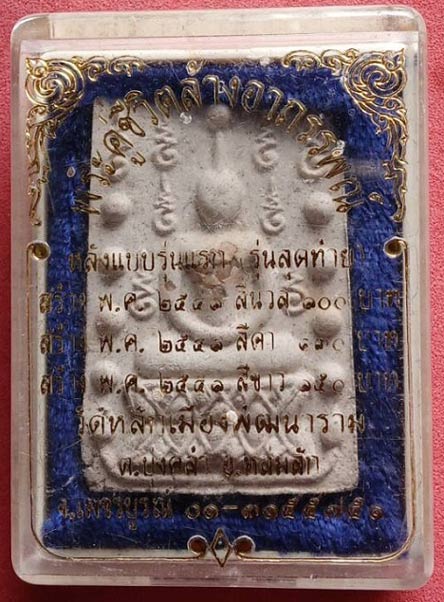 พระคู่ชีวิตล้างอาถรรพณ์
หลังแบบรุ่นแรก (รุ่นสุดท้าย)
สร้าง พ.ศ. ๒๕๔๑ สีนวล ๑๐๐ บาท
สร้าง พ.ศ. ๒๕๔๑ สีดำ บาท
สร้าง พ.ศ. ๒๕๔๑ สีขาว ๑๕๐ บาท
วัดหลักเมืองพัฒนาราม
ต.บุ่งคล้า อ.หล่มสัก
จ.เพชรบูรณ์